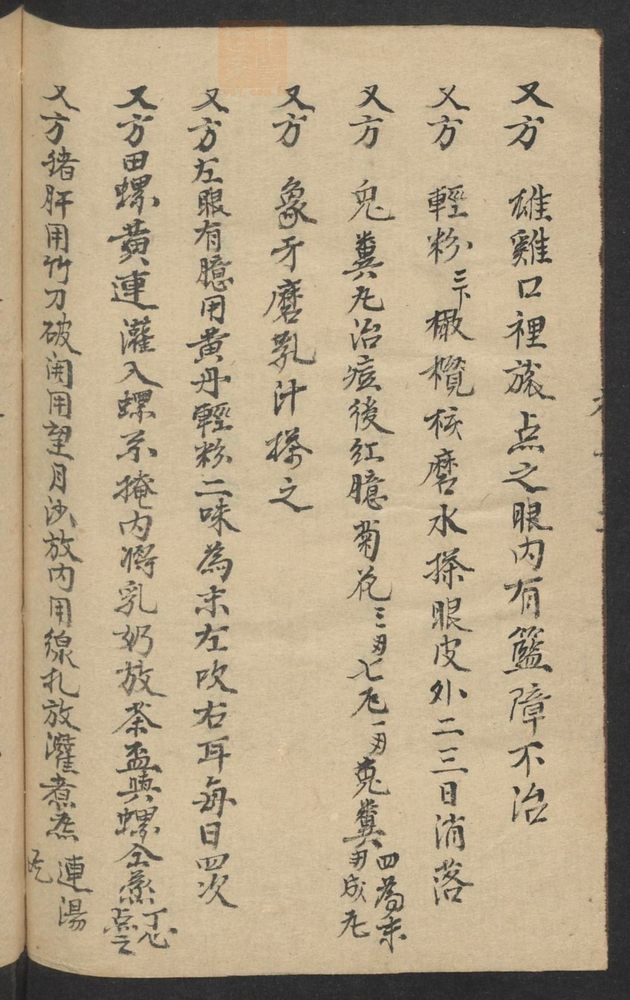 又方 雄雞口裡涎点之眼內有籃障不治
又方 輕粉三下橄欖核磨水搽眼皮外二三日消落
又方 兔糞丸治痘後紅臆菊花三刄七尾一刄兔糞四刄為末成丸
又方 象牙磨乳汁搽之
又方左眼有臆用黃丹輕粉二味為末左吹右耳每日四次
又方田螺黃連灌入螺內將乳奶放茶盃與螺仝蒸点之
又方猪肝用竹刀破開用望月沙放內用線扎放灌煮蒸連湯吃